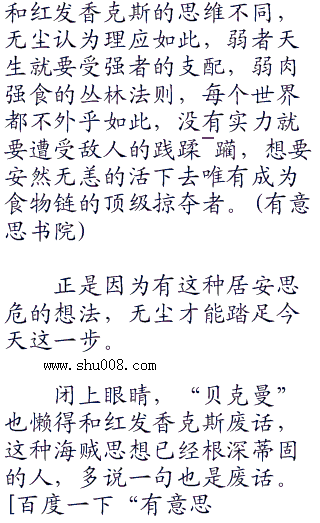 和红发香克斯的思维不同，
无尘认为理应如此，弱者天
生就要受强者的支配，弱肉
强食的丛林法则，每个世界
都不外乎如此，没有实力就
要遭受敌人的践蹂¯躏，想要
安然无恙的活下去唯有成为
食物链的顶级掠夺者。(有意
思书院)
正是因为有这种居安思
危的想法，无尘才能踏足今
天这一步。
www.shu008.com
闭上眼睛，“贝克曼”
也懒得和红发香克斯废话，
这种海贼思想已经根深蒂固
的人，多说一句也是废话。
[百度一下“有意思